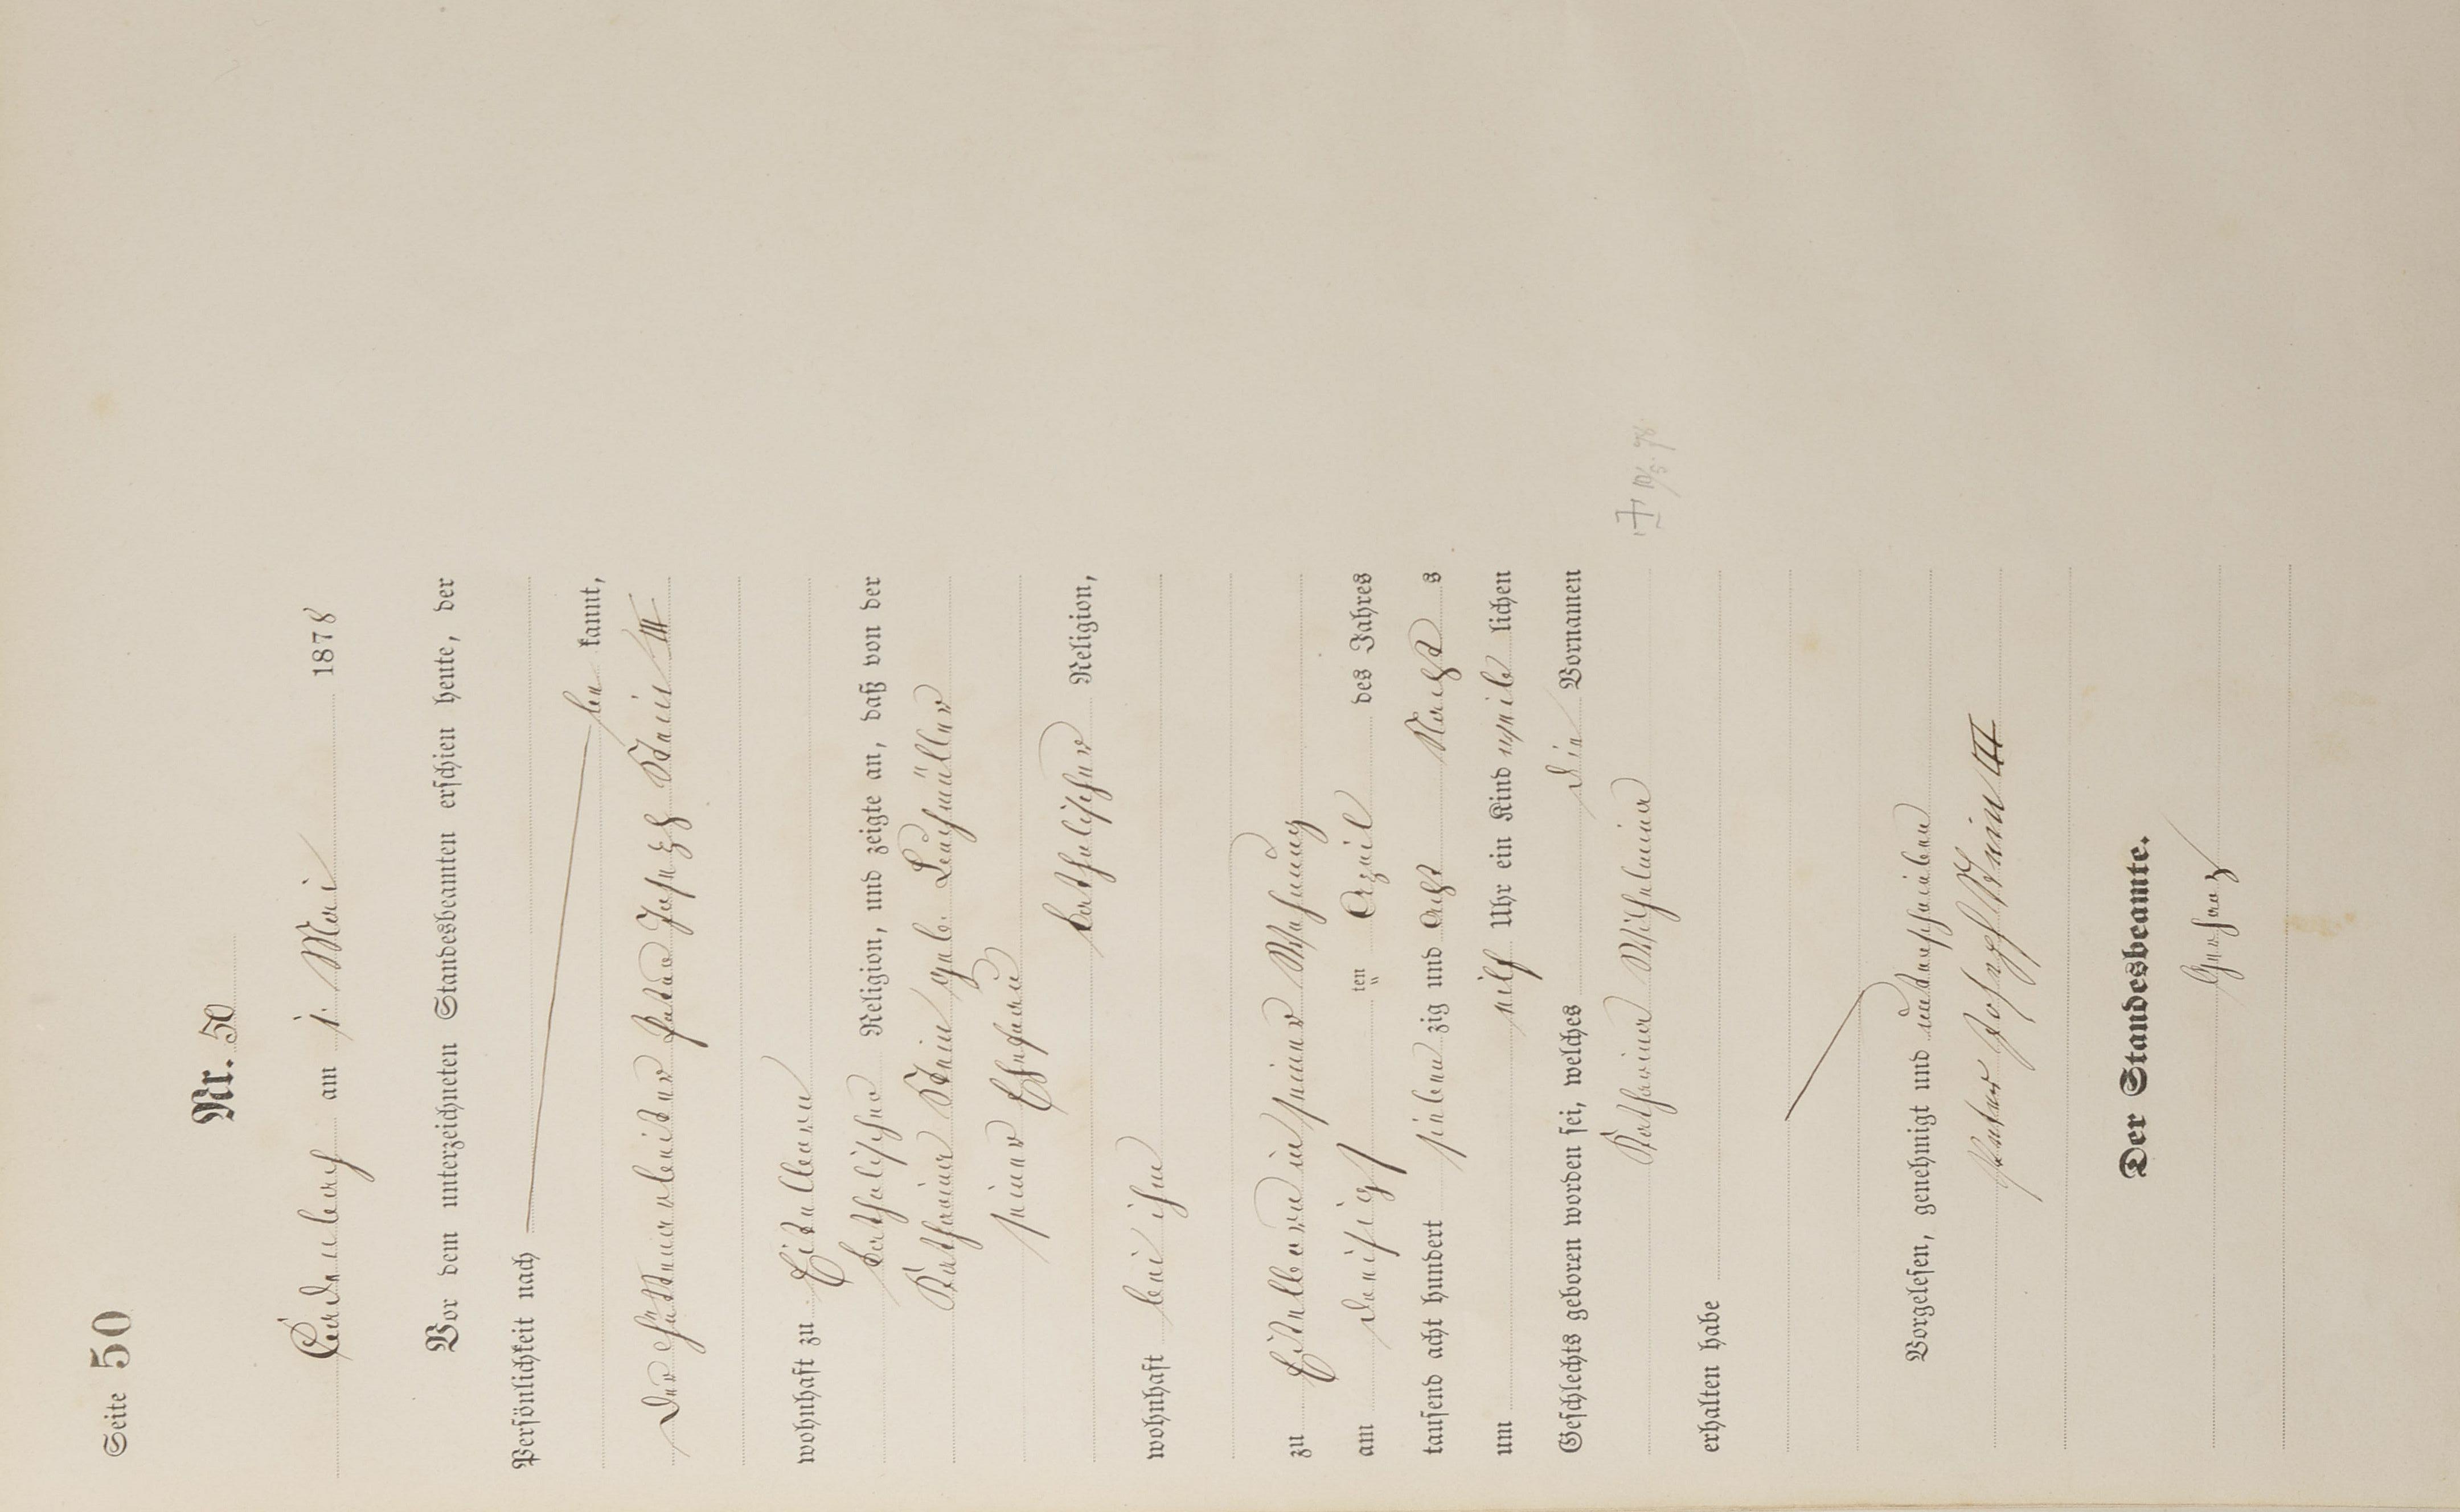 Seite 50
Nr. 50
am 1. Mai 1878
Vor dem unterzeichneten Standesbeamten erschien heute, der
Persönlichkeit nach
be kannt,
der Hüttenarbeiter Peter Joseph Stein III
wohnhaft zu Eitelborn
katholischer Religion, und zeigte an, daß von der
Katharina Stein geb. Leuchmüller
seiner Ehefrau
katholischer Religion,
wohnhaft bei ihm
zu Eitelborn in seiner Wohnung
am dreißigst ten April des Jahres
tausend acht hundert sieben zig und acht Nachts
um elf Uhr ein Kind weib lichen
Geschlechts geboren worden sei, welches die Vornamen
Katharina Wilhelmina
erhalten habe
Vorgelesen, genehmigt und unterschrieben
Peter Joseph Stein III
Der Standesbeamte.